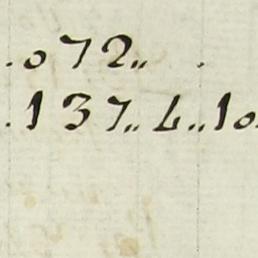 .072..
.137.. L..10